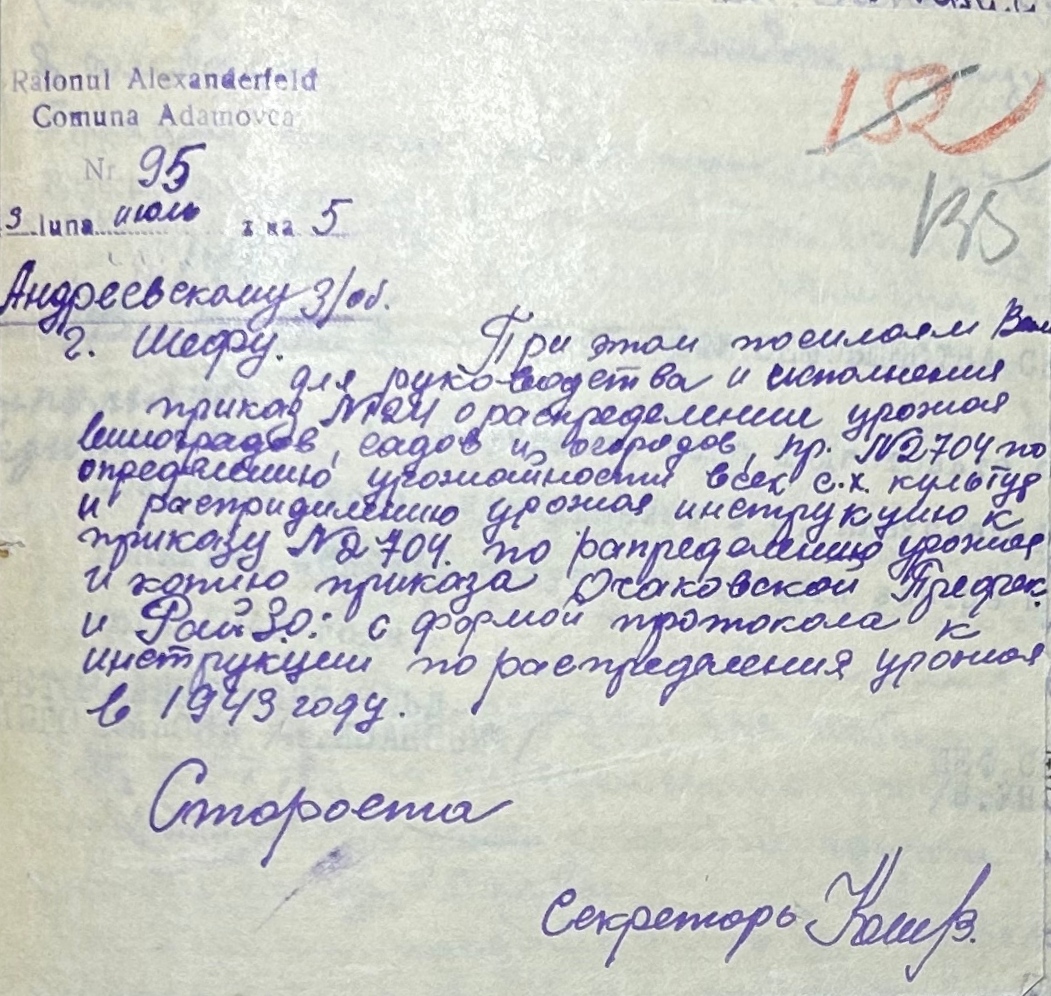 Raionul Alexanderfeld
Comuna Adamovca
Nr 95
3 luna июль zиа 5
152
Андреевскому З/об.
г. Шефу. При этом посилаем Вам
для руководства и исполнения
приказ №24 о распределении урожая
виноградов, садов и огородов, пр. №2704 по
определению урожайности всех с.х. культур
и распридилению урожая инструкцию к
приказу №2704. по рапределению урожая
и копию приказа Очаковской Префек.
и РайЗО: с формой протокола к
инструкции по распределения урожая
в 1943 году.
Староста
Секретарь